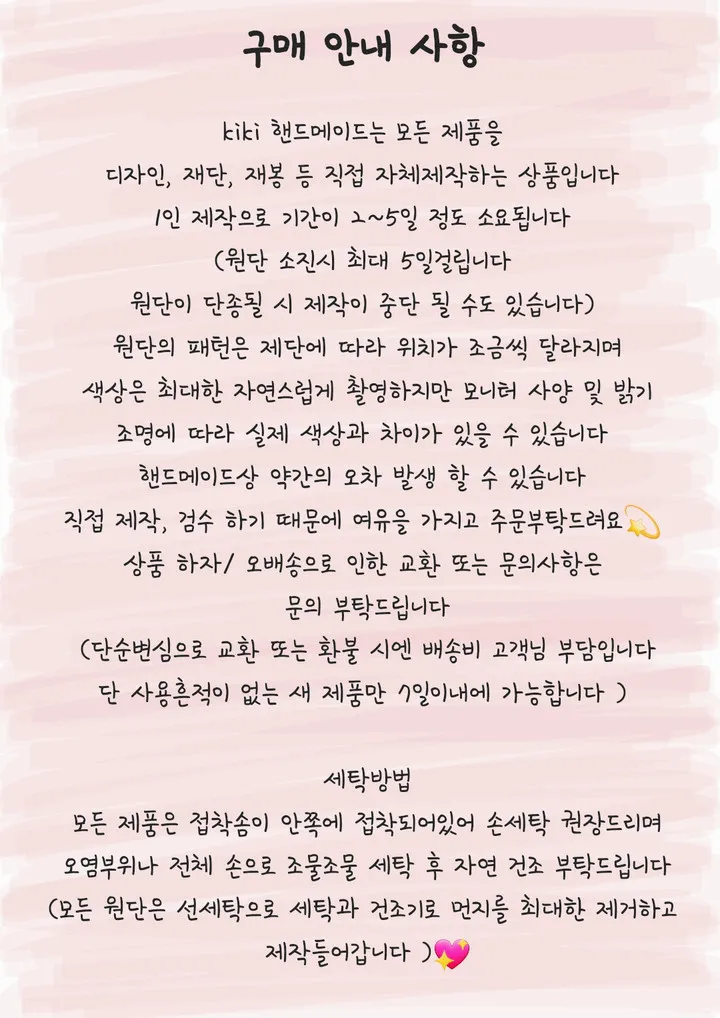 구매 안내 사항
kiki 핸드메이드는 모든 제품을
디자인, 재단, 재봉 등 직접 자체제작하는 상품입니다
1인 제작으로 기간이 2~5일 정도 소요됩니다
(원단 소진시 최대 5일걸립니다
원단이 단종될 시 제작이 중단 될 수도 있습니다)
원단의 패턴은 제단에 따라 위치가 조금씩 달라지며
색상은 최대한 자연스럽게 촬영하지만 모니터 사양 및 밝기
조명에 따라 실제 색상과 차이가 있을 수 있습니다
핸드메이드상 약간의 오차 발생 할 수 있습니다
직접 제작, 검수 하기 때문에 여유을 가지고 주문부탁드려요💫
상품 하자/ 오배송으로 인한 교환 또는 문의사항은
문의 부탁드립니다
(단순변심으로 교환 또는 환불 시엔 배송비 고객님 부담입니다
단 사용흔적이 없는 새 제품만 7일이내에 가능합니다 )
세탁방법
모든 제품은 접착솜이 안쪽에 접착되어있어 손세탁 권장드리며
오염부위나 전체 손으로 조물조물 세탁 후 자연 건조 부탁드립니다
(모든 원단은 선세탁으로 세탁과 건조기로 먼지를 최대한 제거하고
제작들어갑니다 )💖